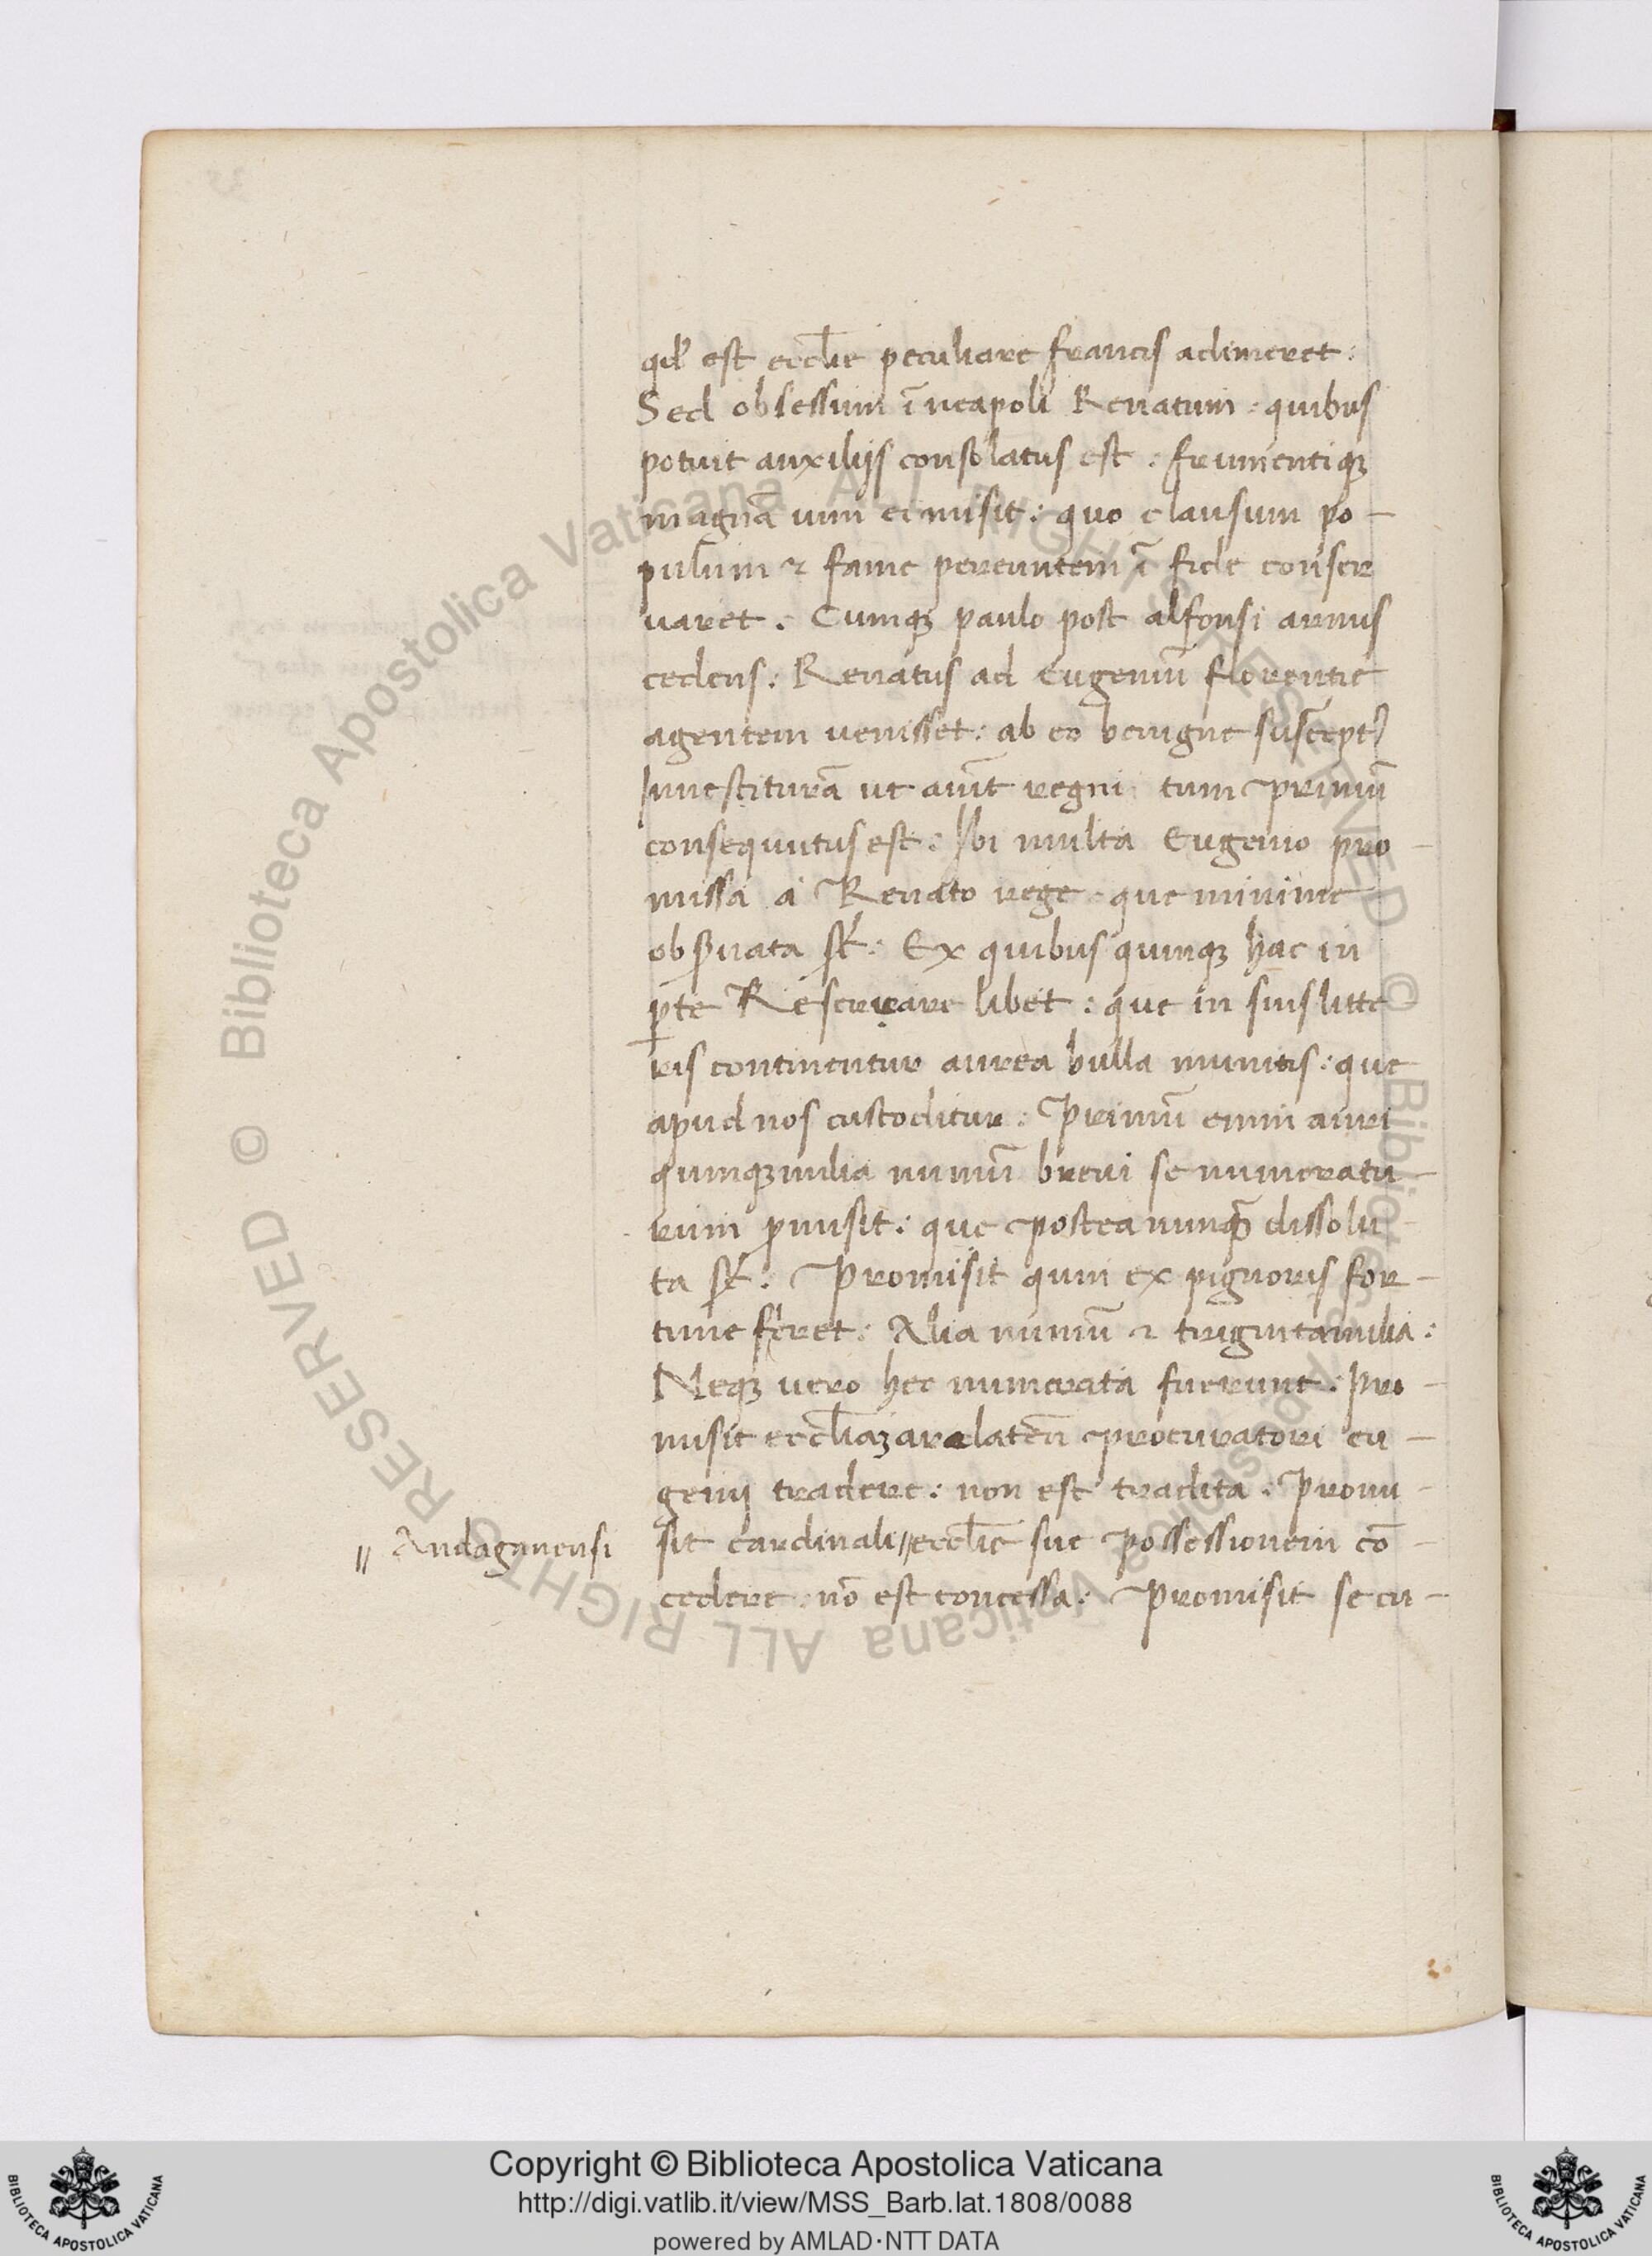 qd' est eccl̄ie peculiare francis adimeret:
Sed obsessum ī neapoli Renatum: quibus
potuit auxilijs consolatus est: frumentiqꝫ
magnā uim ei misit: quo clausum po-
pulum ⁊ fame pereuntem ī fide conser
uaret. Cumqꝫ paulo post alfonsi armis
cedens: Renatus ad Eugeniū florentie
agentem uenisset: ab eo benigne suscept9
Inuestiturā ut aiūt regni tum primū
consequutus est: Ibi multa Eugenio pro-
missa a Renato rege que minime
obseruata st́: Ex quibus quinqꝫ hac in
ꝑte Reserare libet: que in suis litte-
ris continentur aurea bulla munitis: que
apud nos custoditur: Primū enim auri
quinqꝫmilia numū breui se numeratu-
rum ꝓmisit: que postea nunqꝫ̄ dissolu-
ta st́: Promisit qum ex pignoris for-
tune feret: Alia numū ⁊ trigintamilia:
Neqꝫ uero hec numerata fuerunt: Pro-
misit eccl̄iaꝫ arelateñ procuratori eu-
genij tradere: non est tradita: Promi-
sit cardinali // eccl̄ie sue possessionem cō-
cedere nō est concessa: Promisit se cu-
// Andaguuensi
Copyright © Biblioteca Apostolica Vaticana
http://digi.vatlib.it/view/MSS_Barb.lat.1808/0088
powered by AMLAD·NTT DATA
BIBLIOTECA APOSTOLICA VATICANA
BIBLIOTECA APOSTOLICA VATICANA
© Biblioteca Apostolica Vaticana ALL RIGHTS RESERVED
© Biblioteca Apostolica Vaticana ALL RIGHTS RESERVED